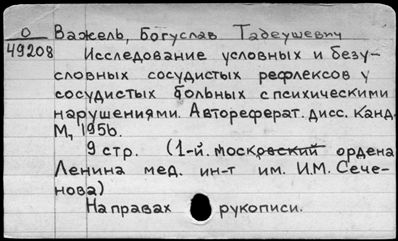 О Важель, Богуслав Тадеушевич
49208 Исследование условных и безу-
словных сосудистых рефлексов у
сосудистых больных с психическими
нарушениями. Автореферат. дисс. канд.
М, 1956.
9 стр. (1-й. московский ордена
Ленина мед. ин-т им. И.М. Сече-
нова)
На правах рукописи.